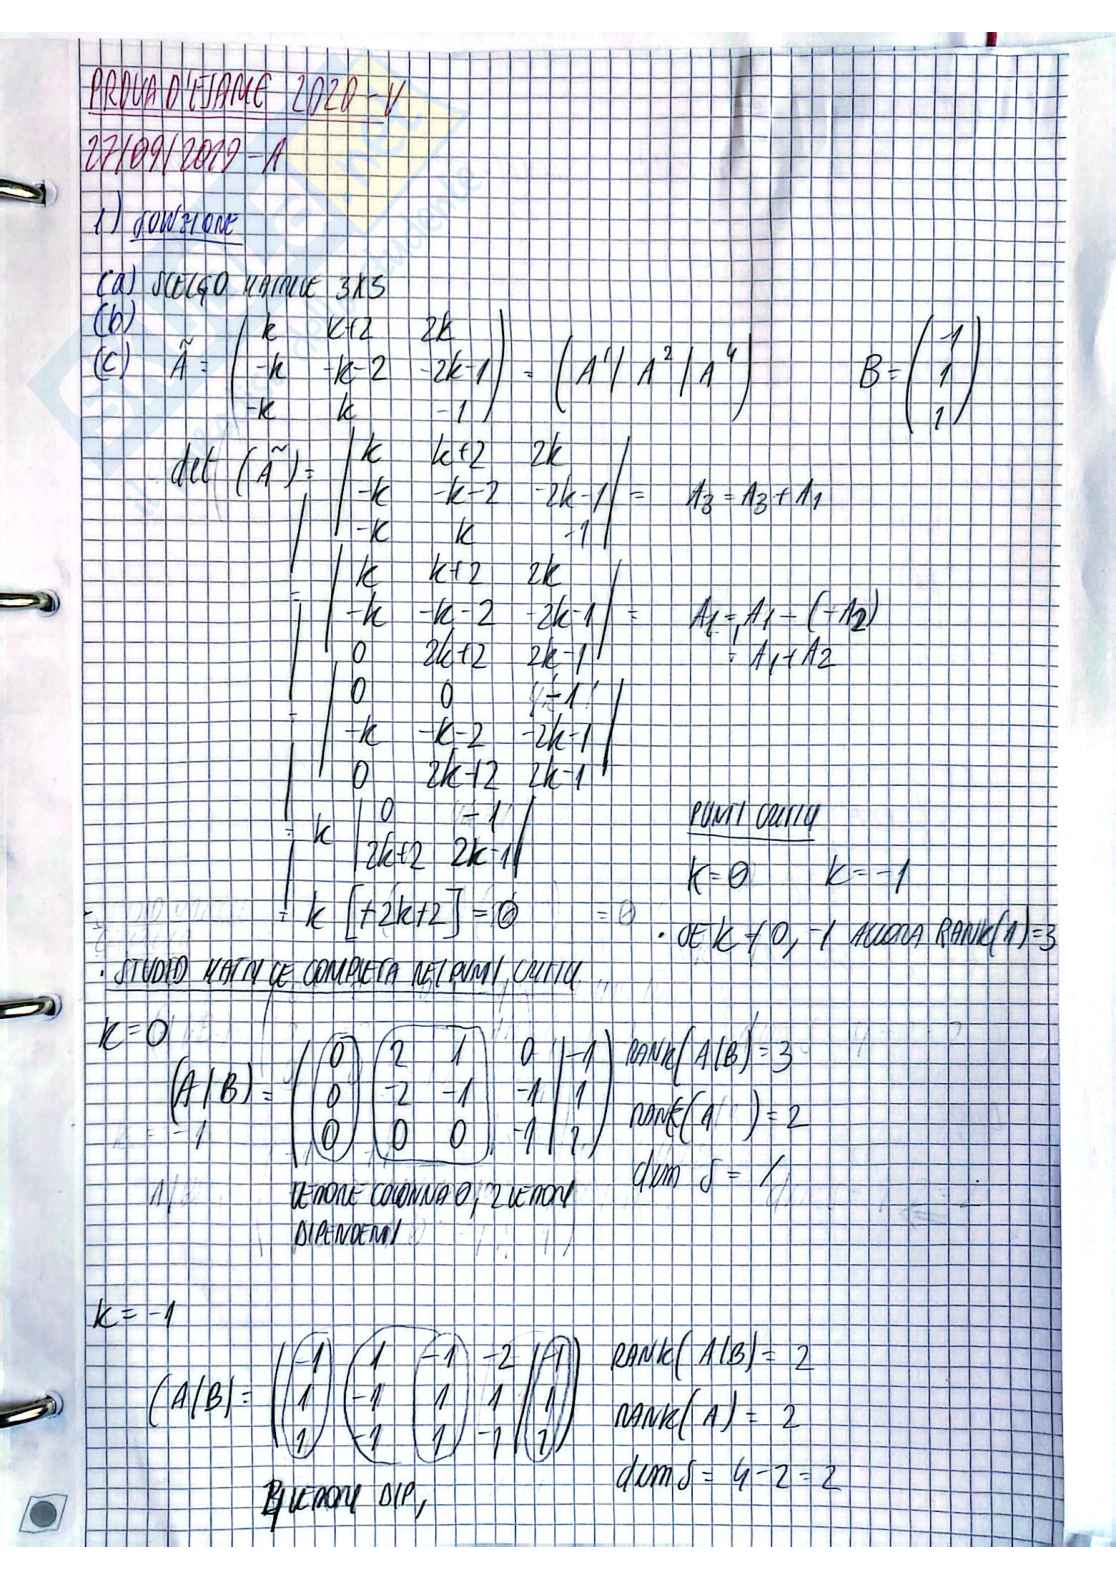 PROVA D'ESAME 2020-V
27/09/2019-A
1) SOLUZIONE
(a) SCELGO MATRICE 3X3
(b)
(c) Ã = ( k k+2 2k
-k -k-2 -2k-1
-k k -1 ) = (A¹ | A² | A⁴) B = ( -1
1
1 )
det (Ã) = | k k+2 2k
-k -k-2 -2k-1
-k k -1 | = A3 = A3 + A1
= | k k+2 2k
-k -k-2 -2k-1
0 2k+2 2k-1 | = A1 = A1 - (-A2)
= A1 + A2
= | 0 0 -1
-k -k-2 -2k-1
0 2k+2 2k-1 |
= k | 0 -1
2k+2 2k-1 |
PUNTI CRITICI
k=0 k=-1
= k [+2k+2] = 0 = 0
· SE k ≠ 0, -1 ALLORA RANK(A)=3
· STUDIO MATRICE COMPLETA NEI PUNTI CRITICI
k=0
(A|B) = ( 0 2 1 0 | -1
0 -2 -1 -1 | 1
0 0 0 -1 | 1 )
RANK(A|B)=3
RANK(A )=2
dim S = /
VETTORE COLONNA 0, 2 VETTORI
DIPENDENTI
k=-1
(A|B) = ( -1 1 -1 -2 | -1
1 -1 1 1 | 1
1 -1 1 -1 | 1 )
RANK(A|B) = 2
RANK(A) = 2
dim S = 4-2=2
VETTORI DIP,